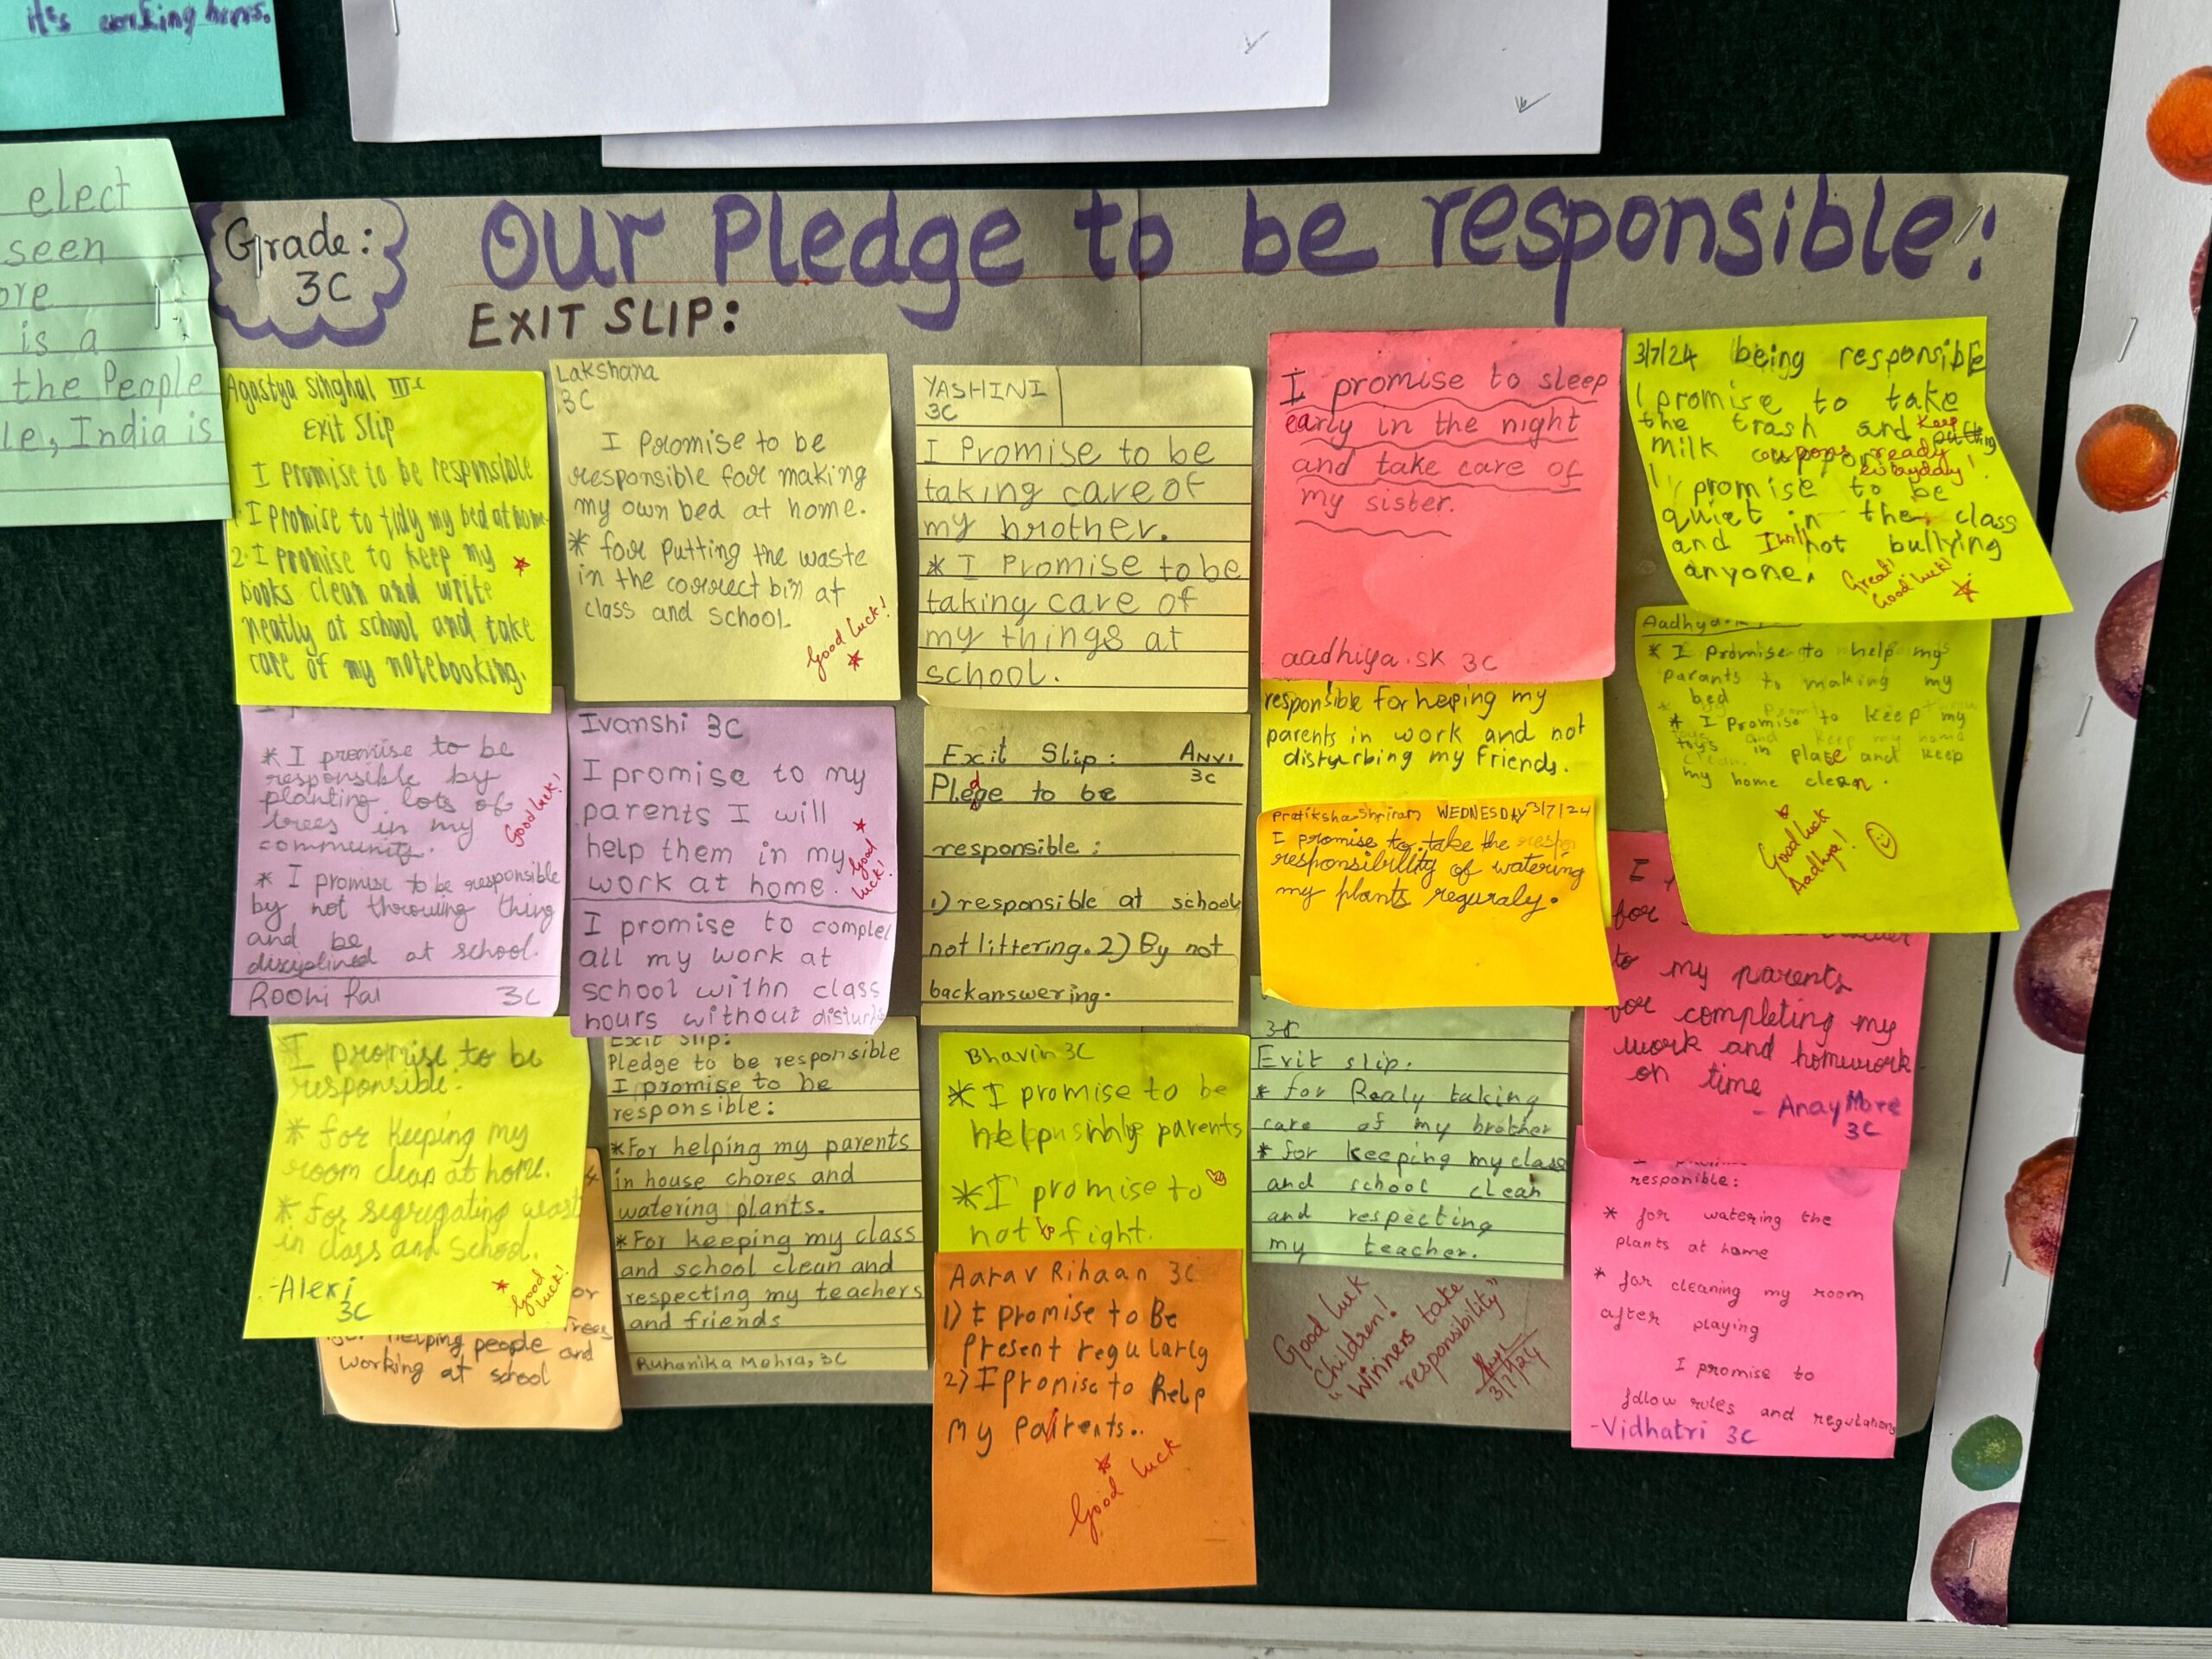 it's working hours.
elect
seen
ore
is a
the People
le, India is
Grade:
3C
Our Pledge to be responsible!
EXIT SLIP:
Agastya Singhal III C
Exit Slip
I Promise to be responsible
1. I Promise to tidy my bed at home.
2. I promise to keep my
books clean and write
neatly at school and take
care of my notebooking.
Lakshana
3C
I Promise to be
responsible for making
my own bed at home.
* for putting the waste
in the correct bin at
class and school.
Good luck!
YASHINI
3C
I Promise to be
taking care of
my brother.
* I Promise to be
taking care of
my things at
school.
I promise to sleep
early in the night
and take care of
my sister.
aadhiya.SK 3C
3/7/24 being responsible
I promise to take
the trash and keep putting
milk coupons ready
everyday!
I promise to be
quiet in the class
and I will not bullying
anyone.
Great!
Good luck!
* I promise to be
responsible by
planting lots of
trees in my
community.
* I promise to be responsible
by not throwing thing
and be
disciplined at school.
Roohi Rai 3C
Good luck!
Ivanshi 3C
I promise to my
parents I will
help them in my
work at home.
Good
luck!
I promise to complet
all my work at
school withn class
hours without disturb
Exit Slip: ANVI
3C
Pledge to be
responsible:
1) responsible at school
not littering. 2) By not
backanswering.
responsible for heping my
parents in work and not
distyrbing my friends.
Pratiksha Shriram WEDNESDAY 3/7/24
I promise to take the respon
responsibility of watering
my plants reguraly.
Aadhya
* I Promise to help my
parants to making my
bed
* I Promise to keep my
toys in place and keep
my home clean.
Good luck
Aadhya!
I
for
to my parents
for completing my
work and homework
on time
- Anay More
3C
I promise to be
responsible.
* for keeping my
room clean at home.
* for segregating wast
in class and school.
-Alexi
3C
Good
luck!
or
Trees
for helping people and
working at school
Exit Slip:
Pledge to be responsible
I promise to be
responsible:
*For helping my parents
in house chores and
watering plants.
*For keeping my class
and school clean and
respecting my teachers
and friends
Ruhanika Mehra, 3C
Bhavin 3C
* I promise to be
help my parents
* I promise to
not to fight.
Aarav Rihaan 3C
1) I promise to Be
Present regularly
2) I promise to help
my parents..
Good luck
3C
Exit slip.
* for Realy taking
care of my brother
* for keeping my class
and school clean
and respecting
my teacher.
Good luck
Children!
"Winners take
responsibility"
3/7/24
responible:
* for watering the
plants at home
* for cleaning my room
after playing
I promise to
follow rules and regulations
-Vidhatri 3C